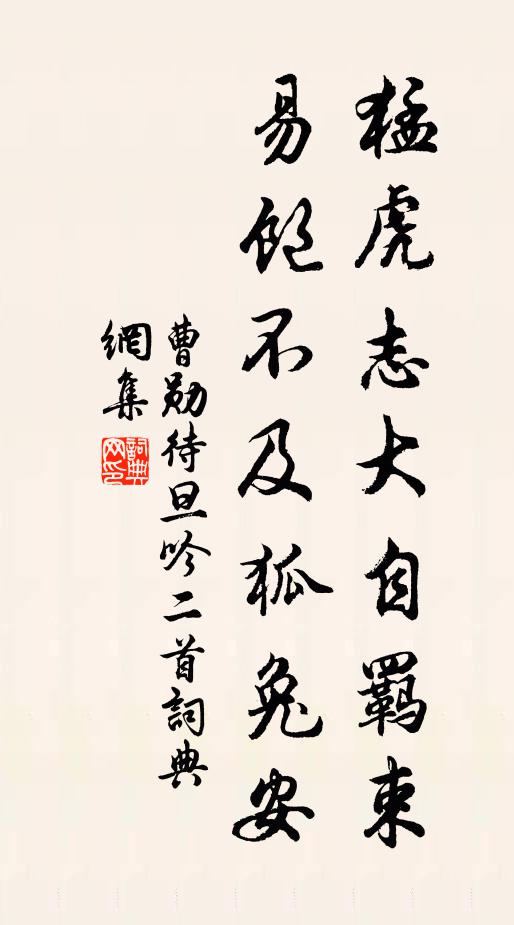 猛虎志大自羈束
易飽不及狐兔安
曹勛待旦吟二首詞典
網集
詞典網印